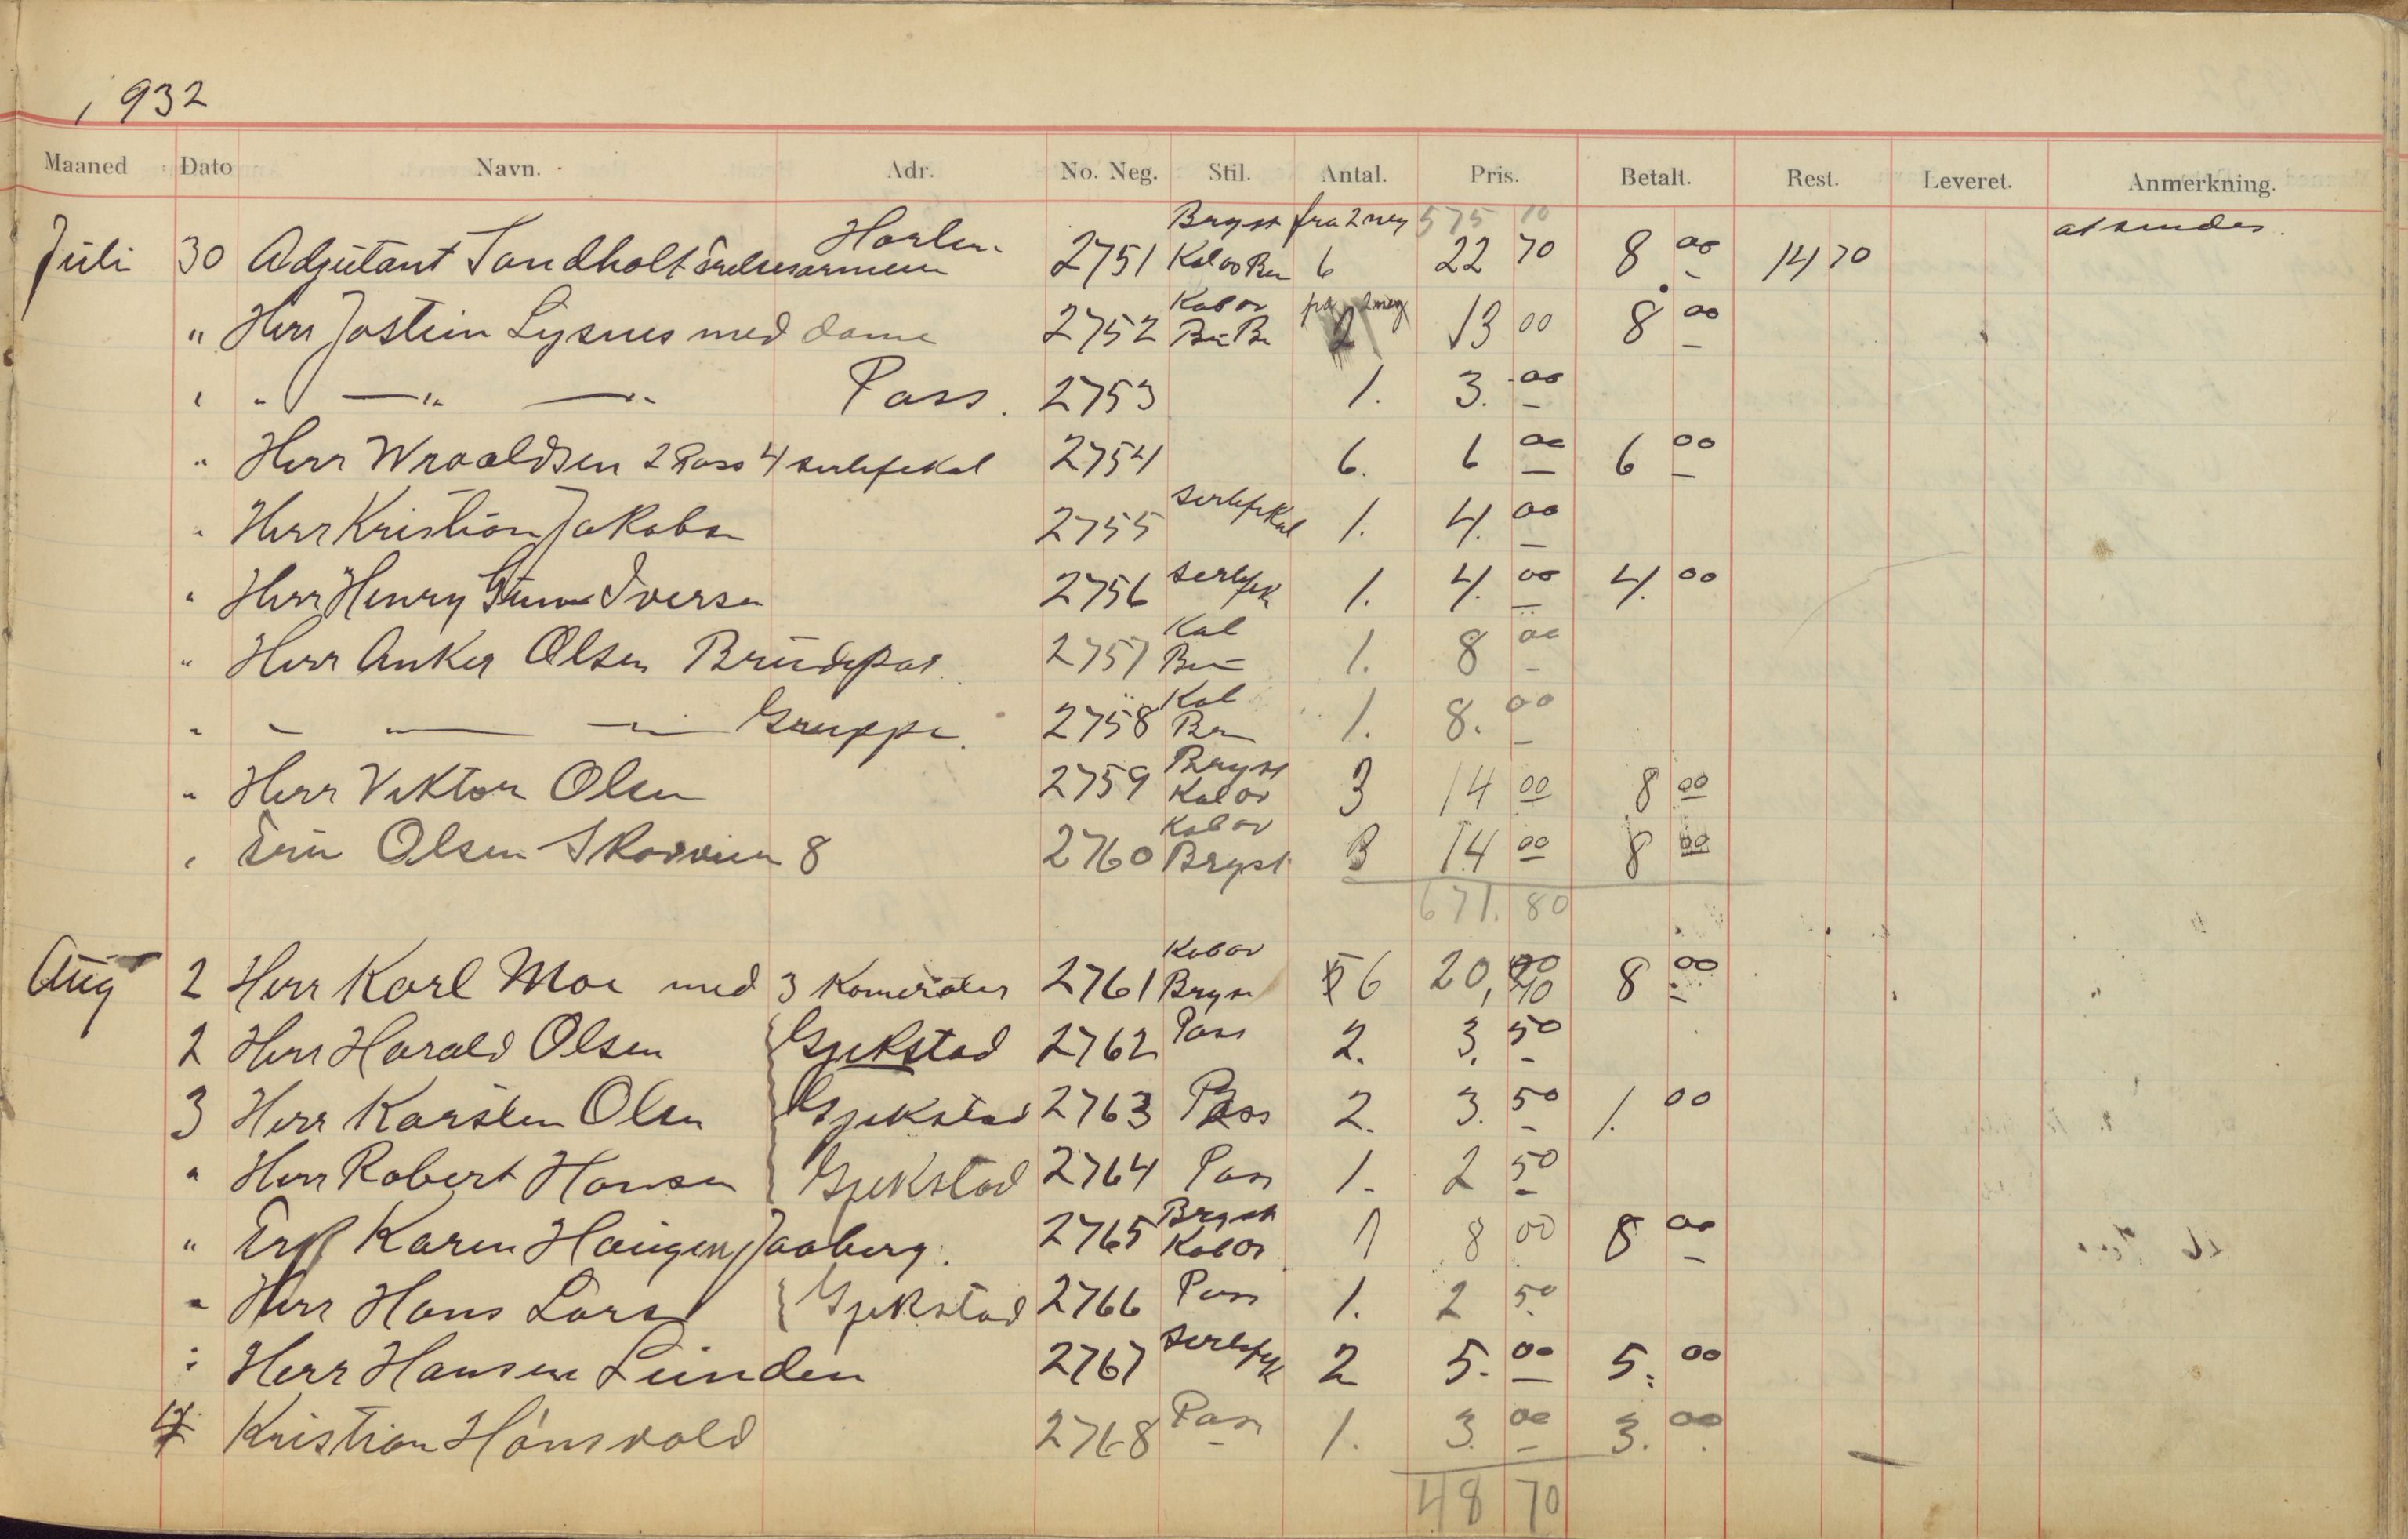 1932
Maaned Dato Navn. Adr. No. Neg. Stil. Antal. Pris. Betalt. Rest. Leveret. Anmerkning.
Bryst fra 2 neg 575 10
Juli 30 Adjutant Sandholt Frelsesarmeen Horten 2751 Kab 6 22 70 8 00 14 70 at sendes.
" Herr Jostein Lysnes med dame 2752 Kabor 2 neg 2 13 00 8 00
" " — " — " Pass. 2753 1. 3. 00
" Herr Wraaldsen 2 Pass 4 serlefekal 2754 6. 6 00 6 00
" Herr Kristian Jakobsen 2755 serlefekal 1. 4. 00
" Herr Henry Iversen 2756 serlefek 1. 4. 00 4. 00
" Herr Anker Olsen Brudepar. 2757 Kab 1. 8 00
" " — " — Gruppe. 2758 Kab 1. 8. 00
" Herr Viktor Olsen 2759 Bryst Kabor 3 14 00 8 00
" Olsen 8 2760 Kabor Bryst 3 14 00 8 00
671. 80
Aug 2 Herr Karl Moe med 3 Kamerater 2761 Kabor Bryst 6 20, 40 8 00
2 Herr Harald Olsen Gjekstad 2762 Pass 2. 3. 50
3 Herr Karsten Olsen Gjekstad 2763 Pass 2. 3. 50 1. 00
" Herr Robert Hansen Gjekstad 2764 Pass 1. 2 50
" Frk Karen Haugen, Jaaberg. 2765 Bryst Kabor 1 8 00 8 00
" Herr Hans Lars Gjekstad 2766 Pass 1. 2 50
" Herr Hansen Lunden 2767 serlefek 2 5. 00 5. 00
4 Kristian Hönsvold 2768 Pass 1. 3. 00 3. 00
48 70